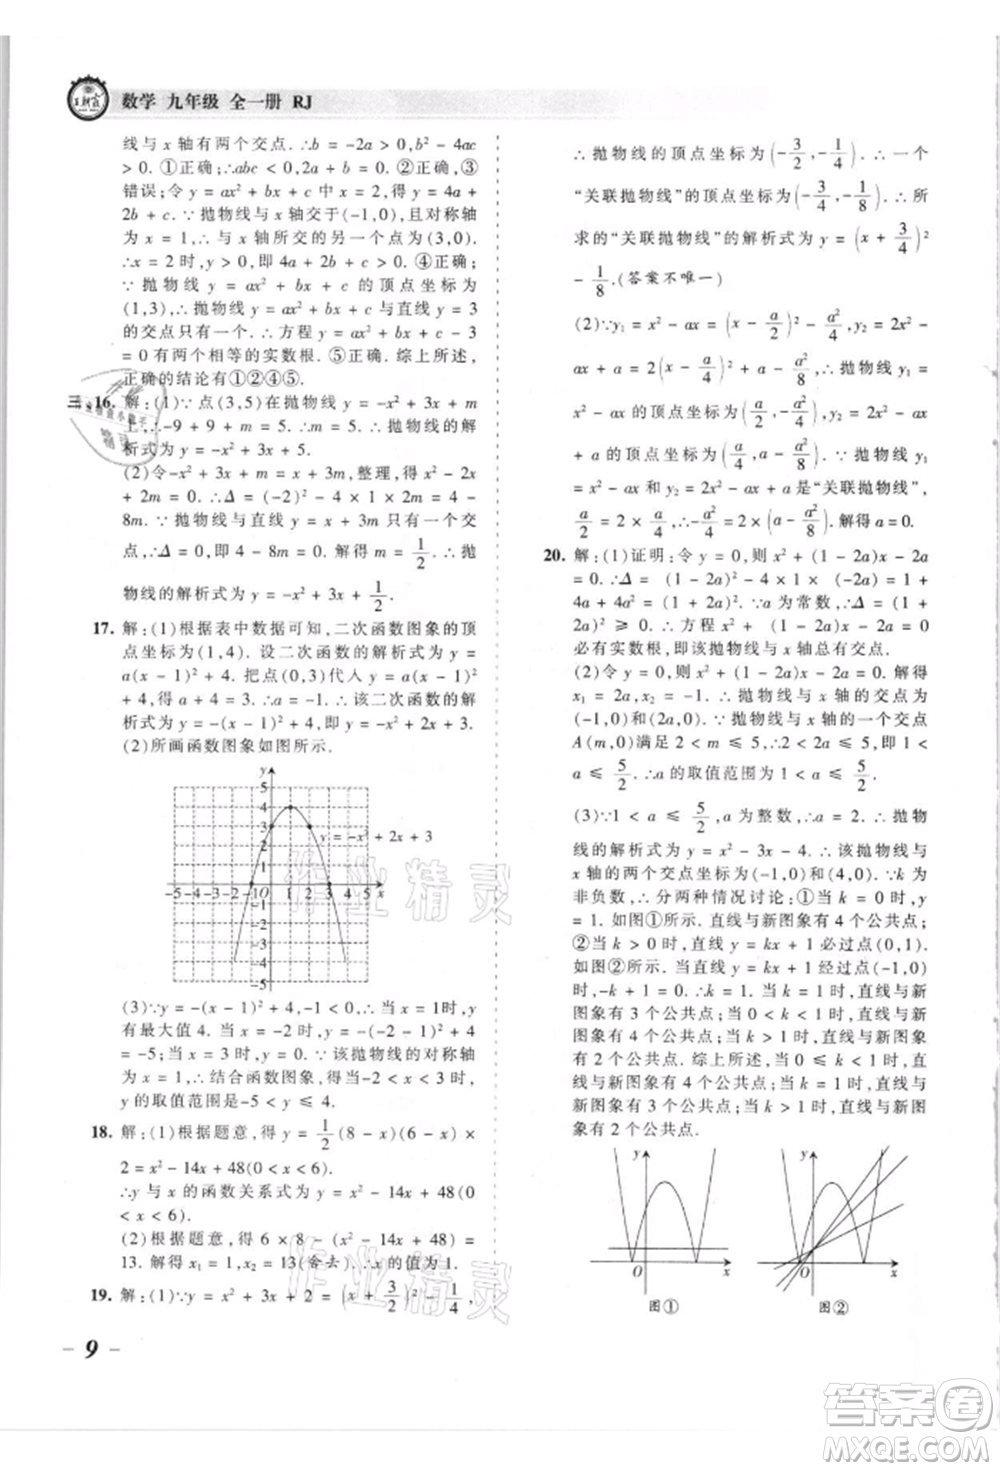 王朝霞 数学 九年级 全一册 RJ
线与 x 轴有两个交点.∴b = -2a > 0, b² - 4ac
> 0. ①正确;∴abc < 0, 2a + b = 0. ②正确,③
错误;令 y = ax² + bx + c 中 x = 2, 得 y = 4a +
2b + c.∵抛物线与 x 轴交于(-1,0),且对称轴
为 x = 1,∴与 x 轴所交的另一个点为(3,0).
∴x = 2 时,y > 0,即 4a + 2b + c > 0. ④正确;
∵抛物线 y = ax² + bx + c 的顶点坐标为
(1,3),∴抛物线 y = ax² + bx + c 与直线 y = 3
的交点只有一个.∴方程 ax² + bx + c - 3
= 0 有两个相等的实数根. ⑤正确. 综上所述,
正确的结论有①②④⑤.
三、16. 解:(1)∵点(3,5)在抛物线 y = -x² + 3x + m
上,∴-9 + 9 + m = 5. 解得 m = 5. ∴抛物线的解
析式为 y = -x² + 3x + 5.
(2)令-x² + 3x + m = x + 3m,整理,得 x² - 2x
+ 2m = 0. ∴Δ = (-2)² - 4 × 1 × 2m = 4 -
8m. ∵抛物线与直线 y = x + 3m 只有一个交
点,∴Δ = 0,即 4 - 8m = 0. 解得 m = 1/2. ∴抛
物线的解析式为 y = -x² + 3x + 1/2.
17. 解:(1)根据表中数据可知,二次函数图象的顶
点坐标为(1,4). 设二次函数的解析式为 y =
a(x - 1)² + 4. 把点(0,3)代入 y = a(x - 1)²
+ 4,得 a + 4 = 3. ∴a = -1. ∴该二次函数的解
析式为 y = -(x - 1)² + 4,即 y = -x² + 2x + 3.
(2)所画函数图象如图所示.
y
5
4
3
2
1
y = -x² + 2x + 3
-5 -4 -3 -2 -1 O 1 2 3 4 5 x
-1
-2
-3
-4
-5
(3)∵y = -(x - 1)² + 4, -1 < 0,∴当 x = 1时, y
有最大值 4. 当 x = -2 时,y = -(-2 - 1)² + 4
= -5;当 x = 2 时,y = 3. ∵该抛物线的对称轴
为 x = 1,∴结合函数图象,当-2 < x < 2时,
y 的取值范围是-5 < y ≤ 4.
18. 解:(1)根据题意,得 y = 1/2(8 - x)(6 - x) ×
2 = x² - 14x + 48(0 < x < 6).
∴y 与 x 的函数关系式为 y = x² - 14x + 48(0
< x < 6).
(2)根据题意,得 6 × 8 - (x² - 14x + 48) =
13. 解得 x₁ = 1, x₂ = 13(舍去).∴x 的值为 1.
19. 解:(1)∵y = x² + 3x + 2 = (x + 3/2)² - 1/4,
- 9 -
∴抛物线的顶点坐标为(-3/2,-1/4).∴一个
“关联抛物线”的顶点坐标为(-3/4,-1/8).∴所
求的“关联抛物线”的解析式为 y = (x + 3/4)²
- 1/8.(答案不唯一)
(2)∵y₁ = x² - ax = (x - a/2)² - a²/4, y₂ = x² -
ax + a = (x - a/2)² - a²/4 + a,∴抛物线 y₁ =
x² - ax 的顶点坐标为(a/2, -a²/4),y₂ = x² - ax
+ a 的顶点坐标为(a/2, -a²/4 + a).∵抛物线 y₁
= x² - ax 和 y₂ = x² - ax + a 是“关联抛物线”,
a/2 = 2 × a/2,∴-a²/4 = 2(-a²/4 + a). 解得 a = 0.
20. 解:(1)证明:令 y = 0,则 x² + (1 - 2a)x - 2a
= 0. ∴Δ = (1 - 2a)² - 4 × 1 × (-2a) = 1 +
4a² + 4a = (2a + 1)². ∵a 为常数,∴Δ = (2a +
1)² ≥ 0. ∴方程 x² + (1 - 2a)x - 2a = 0
必有实数根,即该抛物线与 x 轴总有交点.
(2)令 y = 0,则 x² + (1 - 2a)x - 2a = 0. 解得
x₁ = 2a, x₂ = -1. ∴抛物线与 x 轴的交点为
(-1,0)和(2a,0).∵抛物线与 x 轴的一个交点
A(m,0)满足 2 < m ≤ 5,∴2 < 2a ≤ 5. ∴1 < a
≤ 5/2. ∴a 的取值范围为 1 < a ≤ 5/2.
(3)∵1 < a ≤ 5/2, a 为整数,∴a = 2. ∴抛物
线的解析式为 y = x² - 3x - 4. ∴该抛物线与 x
轴的两个交点分别为(-1,0)和(4,0).∵k 为
非负数,∴分两种情况讨论:①当 k = 0 时, y =
1. 如图①所示. 直线与新图象有 4 个公共点;
②当 k > 0 时,直线 y = kx + 1 必过点(0,1).
如图②所示. 当直线 y = kx + 1 过点(-1,0)
时,-k + 1 = 0. ∴k = 1. ∴当 k = 1 时,直线与新
图象有 3 个公共点;当 0 < k < 1 时,直线与新图
象有 4 个公共点;当 k > 1 时,直线与新图象有
2 个公共点. 综上所述,当 0 ≤ k < 1 时,直
线与新图象有 4 个公共点;当 k = 1 时,直线与
新图象有 3 个公共点;当 k > 1 时,直线与新图
象有 2 个公共点.
y O x
图①
y O x
图②
作业精灵
作业精灵
答案圈
MXQE.COM